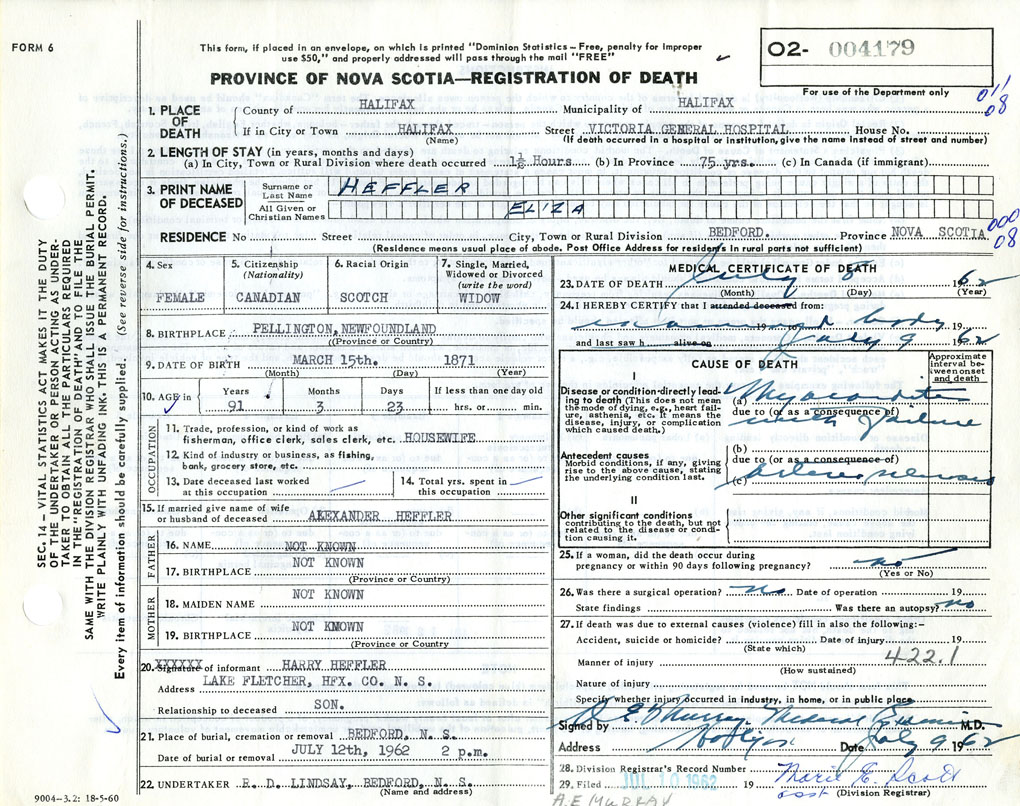 FORM 6
This form, if placed in an envelope, on which is printed "Dominion Statistics – Free, penalty for improper
use $50," and properly addressed will pass through the mail "FREE"
O2- 004179
For use of the Department only
PROVINCE OF NOVA SCOTIA—REGISTRATION OF DEATH
011
08
1. PLACE OF DEATH
County of HALIFAX Municipality of HALIFAX
If in City or Town HALIFAX Street VICTORIA GENERAL HOSPITAL House No.
(Name) (If death occurred in a hospital or institution, give the name instead of street and number)
2. LENGTH OF STAY (in years, months and days)
(a) In City, Town or Rural Division where death occurred 1½ Hours (b) In Province 75 yrs. (c) In Canada (if immigrant)
3. PRINT NAME OF DECEASED
Surname or Last Name HEFFLER
All Given or Christian Names ELIZA
000
08
RESIDENCE No Street City, Town or Rural Division BEDFORD. Province NOVA SCOTIA
(Residence means usual place of abode. Post Office Address for residents in rural parts not sufficient)
4. Sex
FEMALE
5. Citizenship
(Nationality)
CANADIAN
6. Racial Origin
SCOTCH
7. Single, Married,
Widowed or Divorced
(write the word)
WIDOW
8. BIRTHPLACE PELLINGTON, NEWFOUNDLAND
(Province or Country)
9. DATE OF BIRTH MARCH 15th. 1871
(Month) (Day) (Year)
10. AGE in Years Months Days If less than one day old
91 3 23 hrs. or min.
OCCUPATION
11. Trade, profession, or kind of work as
fisherman, office clerk, sales clerk, etc. HOUSEWIFE
12. Kind of industry or business, as fishing,
bank, grocery store, etc.
13. Date deceased last worked
at this occupation
14. Total yrs. spent in
this occupation
15. If married give name of wife
or husband of deceased ALEXANDER HEFFLER
FATHER
16. NAME NOT KNOWN
17. BIRTHPLACE NOT KNOWN
(Province or Country)
MOTHER
18. MAIDEN NAME NOT KNOWN
19. BIRTHPLACE NOT KNOWN
(Province or Country)
20. Signature of informant HARRY HEFFLER
XXXXXX
Address LAKE FLETCHER, HFX. CO. N. S.
Relationship to deceased SON.
21. Place of burial, cremation or removal BEDFORD, N. S.
Date of burial or removal JULY 12th, 1962 2 p.m.
22. UNDERTAKER R. D. LINDSAY, BEDFORD, N. S.
(Name and address)
9004—3.2: 18-5-60
SEC. 14 – VITAL STATISTICS ACT MAKES IT THE DUTY
OF THE UNDERTAKER OR PERSON ACTING AS UNDER-
TAKER TO OBTAIN ALL THE PARTICULARS REQUIRED
IN THE "REGISTRATION OF DEATH" AND TO FILE THE
SAME WITH THE DIVISION REGISTRAR WHO SHALL ISSUE THE BURIAL PERMIT.
WRITE PLAINLY WITH UNFADING INK. THIS IS A PERMANENT RECORD.
Every item of information should be carefully supplied. (See reverse side for instructions.)
MEDICAL CERTIFICATE OF DEATH
23. DATE OF DEATH July 8 1962
(Month) (Day) (Year)
24. I HEREBY CERTIFY that I attended deceased from:
examined body 19 19
and last saw h alive on July 9 1962
CAUSE OF DEATH
Approximate
interval between
onset
and death
I
Disease or condition directly lead-
ing to death (This does not mean
the mode of dying, e.g., heart failure,
asthenia, etc. It means the
disease, injury, or complication
which caused death.)
(a) Myocarditis
due to (or as a consequence of)
with failure
Antecedent causes
Morbid conditions, if any, giving
rise to the above cause, stating
the underlying condition last.
(b)
due to (or as a consequence of)
(c) arterio sclerosis
II
Other significant conditions
contributing to the death, but not
related to the disease or condition
causing it.
25. If a woman, did the death occur during
pregnancy or within 90 days following pregnancy? no
(Yes or No)
26. Was there a surgical operation? no Date of operation 19
State findings Was there an autopsy? no
27. If death was due to external causes (violence) fill in also the following:–
Accident, suicide or homicide? Date of injury 19
(State which)
Manner of injury 422.1
(How sustained)
Nature of injury
Specify whether injury occurred in industry, in home, or in public place
Signed by A. E. Murray Medical Examiner M.D.
Address Halifax Date July 9 1962
28. Division Registrar's Record Number
29. Filed JUL 10 1962 19 Marie E. Scott
asst (Division Registrar)
A.E MURRAY